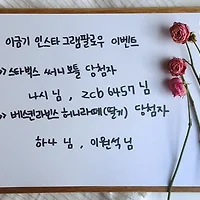 이곰기 인스타그램팔로우 이벤트
>스타벅스 써니보틀 당첨자
나시 님, zcb6457 님
>베스킨라빈스 허니라떼(딸기) 당첨자
하나 님, 이원석 님